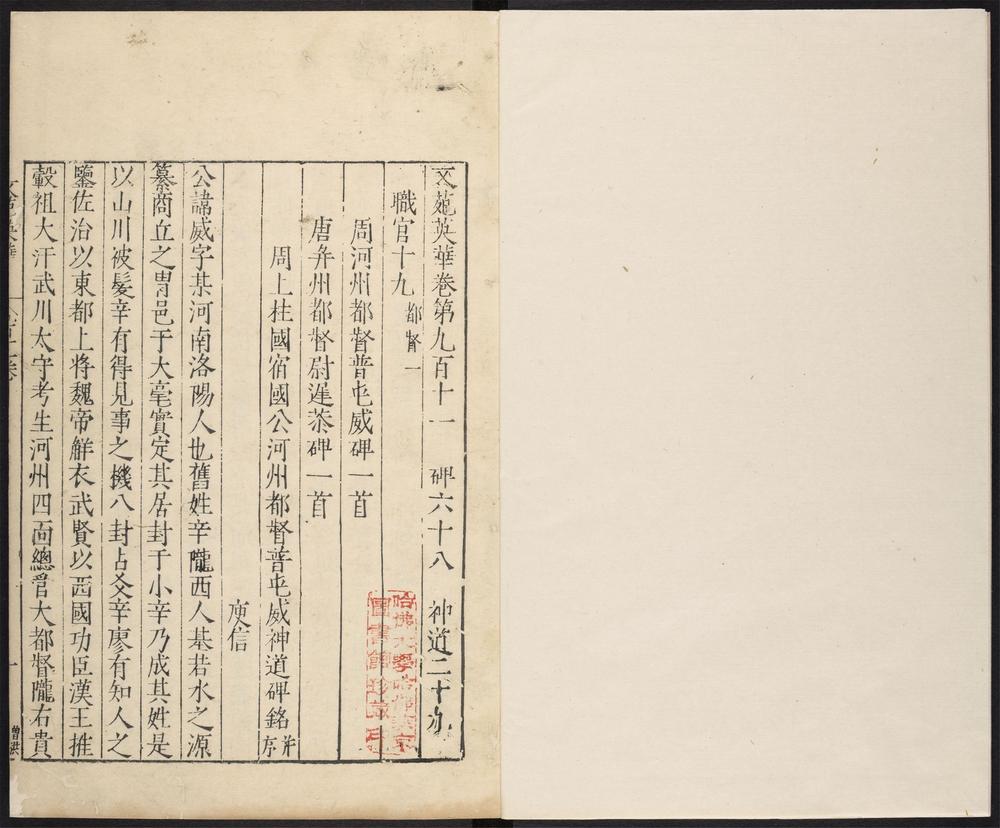 文苑英華卷第九百十一　碑六十八　神道二十九
職官十九 都督一
周河州都督普屯威碑一首
唐并州都督尉遲恭碑一首
周上柱國宿國公河州都督普屯威神道碑銘 并序
庾信
公諱威字某河南洛陽人也舊姓辛隴西人基若水之源
纂商丘之胄邑于大亳實定其居封于小辛乃成其姓是
以山川被髮辛有得見事之機八封占爻辛廖有知人之
鑒佐治以東都上將魏帝鮮衣武賢以西國功臣漢王推
轂祖大汗武川太守考生河州四面總管大都督隴右貴
一
曾洪
哈佛大學哈佛燕京
圖書館珍藏印